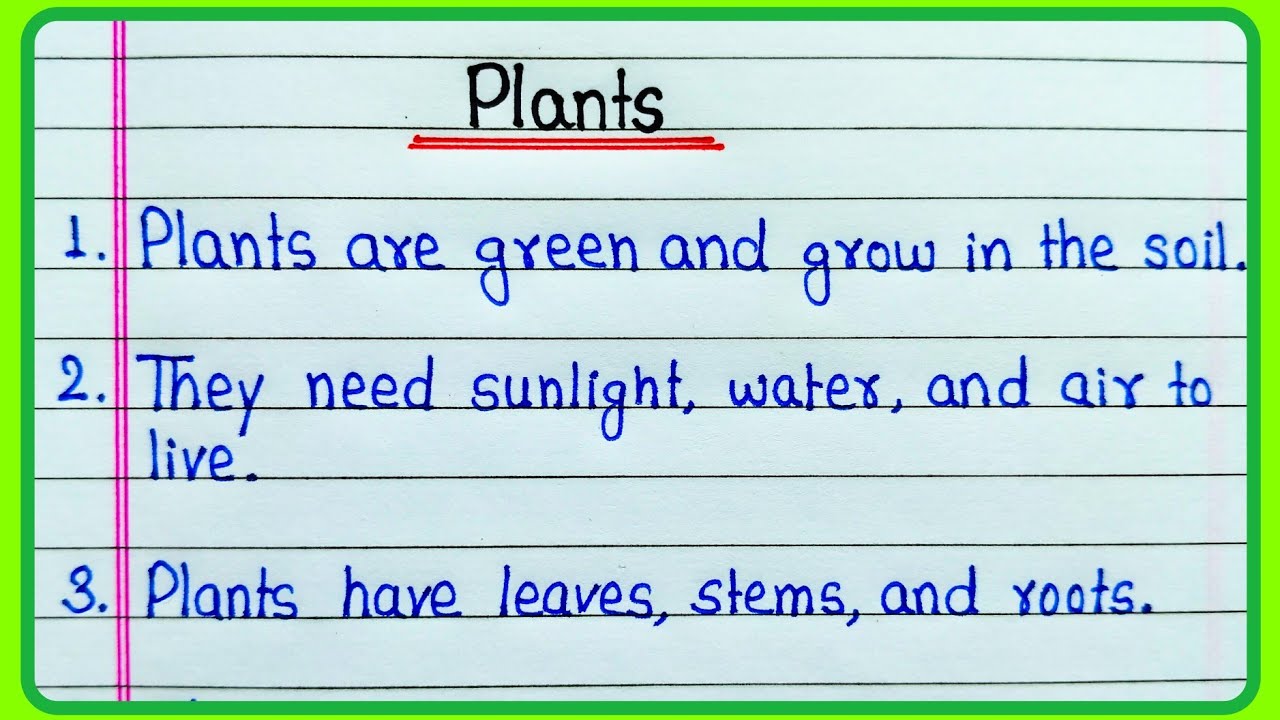 Plants
1. Plants are green and grow in the soil.
2. They need sunlight, water, and air to
live.
3. Plants have leaves, stems, and roots.